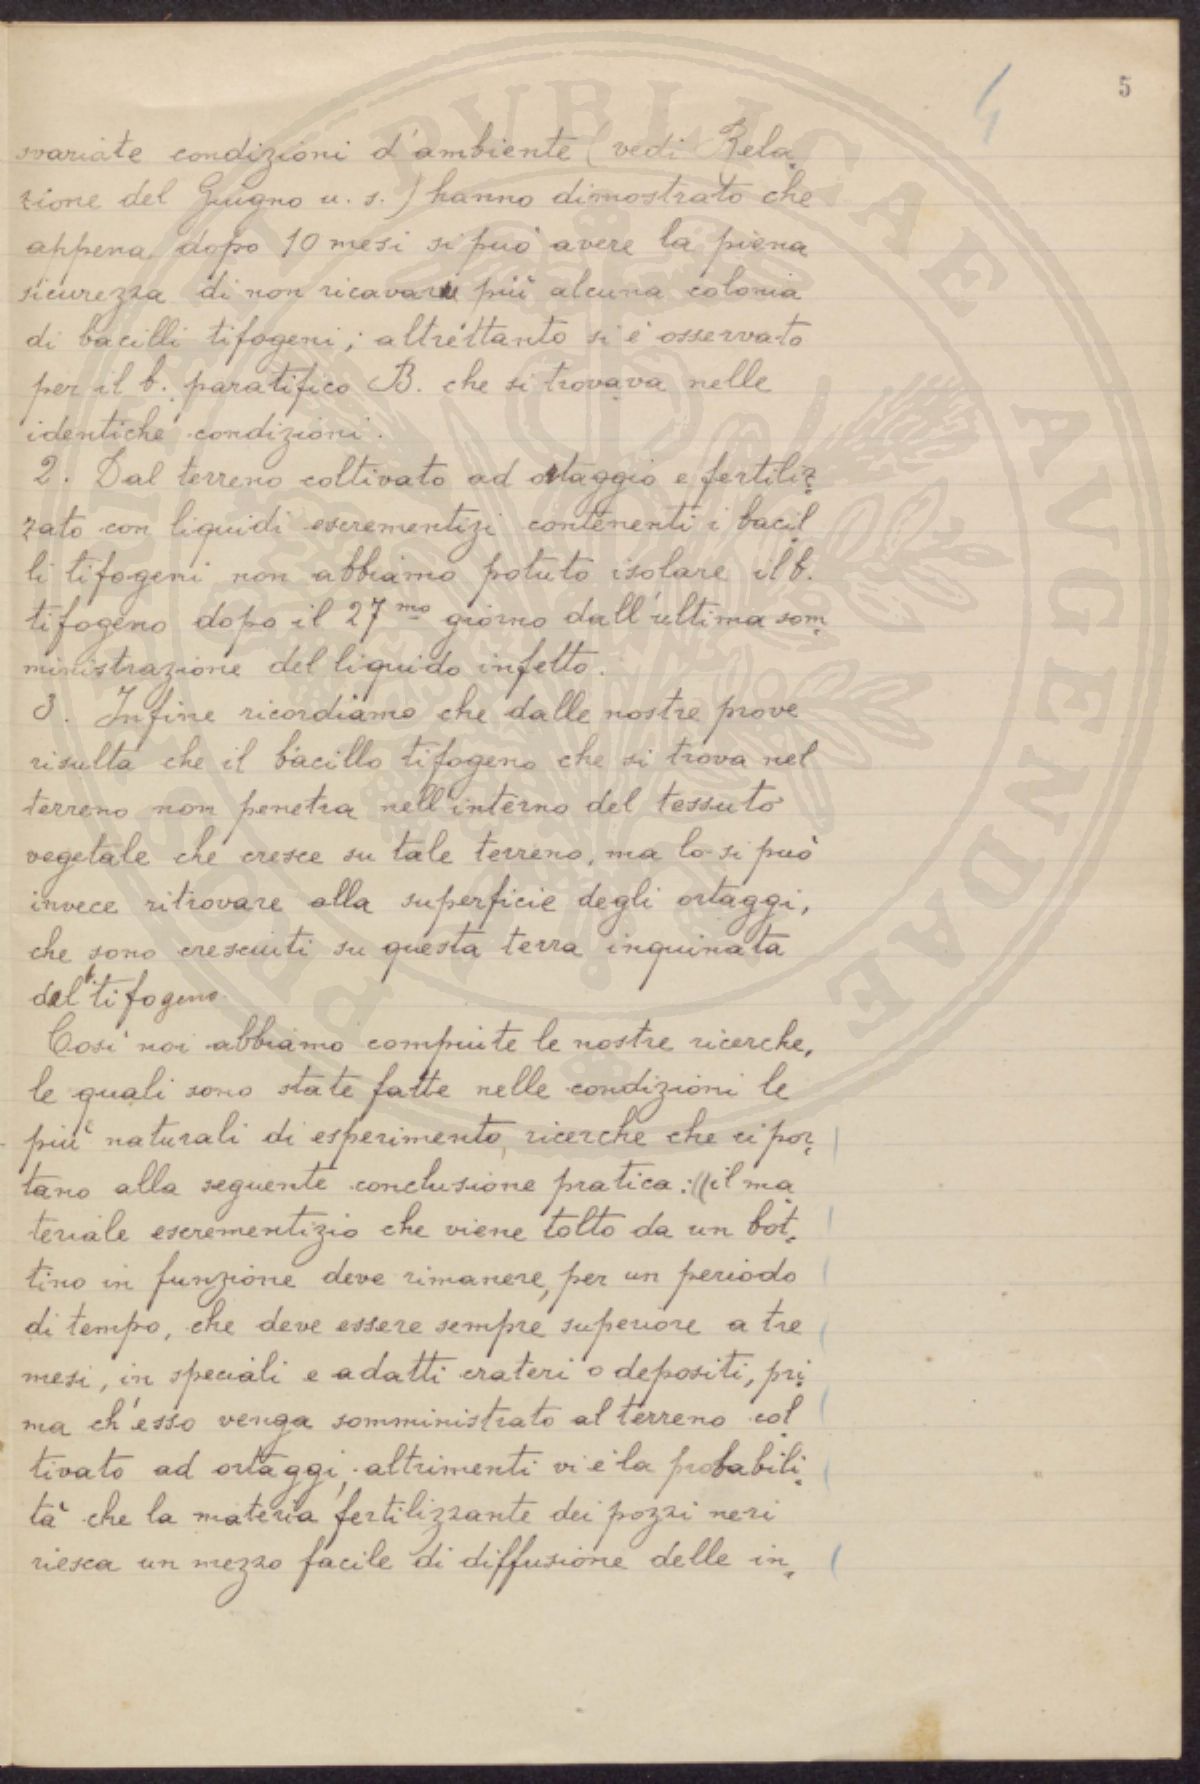 5
svariate condizioni d'ambiente (vedi Rela-
zione del Giugno u. s.) hanno dimostrato che
appena dopo 10 mesi si può avere la piena
sicurezza di non ricavare più alcuna colonia
di bacilli tifogeni; altrettanto si è osservato
per il b. paratifico B. che si trovava nelle
identiche condizioni.
2. Dal terreno coltivato ad ortaggio e fertiliz-
zato con liquidi escrementizi contenenti i bacil-
li tifogeni non abbiamo potuto isolare il b.
tifogeno dopo il 27mo giorno dall'ultima som-
ministrazione del liquido infetto.
3. Infine ricordiamo che dalle nostre prove
risulta che il bacillo tifogeno che si trova nel
terreno non penetra nell'interno del tessuto
vegetale che cresce su tale terreno, ma lo si può
invece ritrovare alla superficie degli ortaggi,
che sono cresciuti su questa terra inquinata
dal b. tifogeno.
Così noi abbiamo compiute le nostre ricerche,
le quali sono state fatte nelle condizioni le
più naturali di esperimento, ricerche che ci por-
tano alla seguente conclusione pratica: "il ma-
teriale escrementizio che viene tolto da un bot-
tino in funzione deve rimanere, per un periodo
di tempo, che deve essere sempre superiore a tre
mesi, in speciali e adatti crateri o depositi, pri-
ma ch'esso venga somministrato al terreno col-
tivato ad ortaggi, altrimenti vi è la probabili-
tà che la materia fertilizzante dei pozzi neri
riesca un mezzo facile di diffusione delle in-
PUBLICAE AUGENDAE